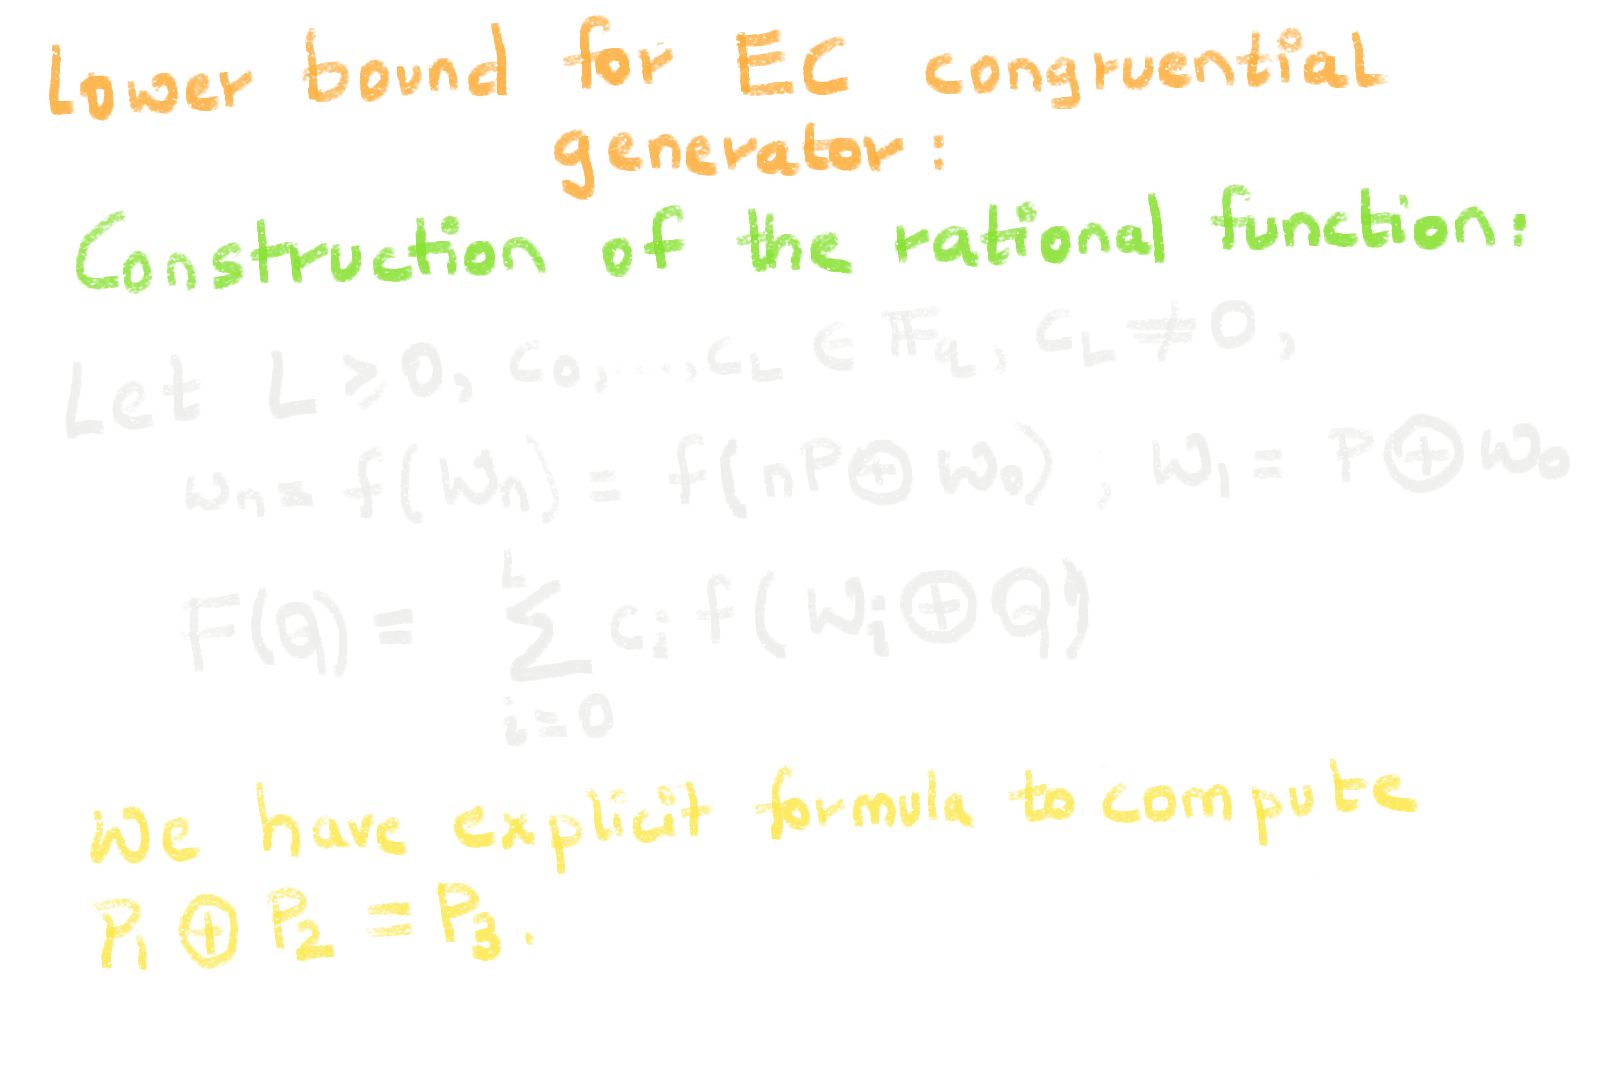 Lower bound for EC congruential
generator:
Construction of the rational function:
Let L ⩾ 0, c₀, ..., c_L ∈ 𝔽_q, c_L ≠ 0,
w_n = f(W_n) = f(nP ⊕ W₀) ; W₁ = P ⊕ W₀
F(Q) = ∑_{i=0}^{L} c_i f(W_i ⊕ Q)
We have explicit formula to compute
P₁ ⊕ P₂ = P₃.